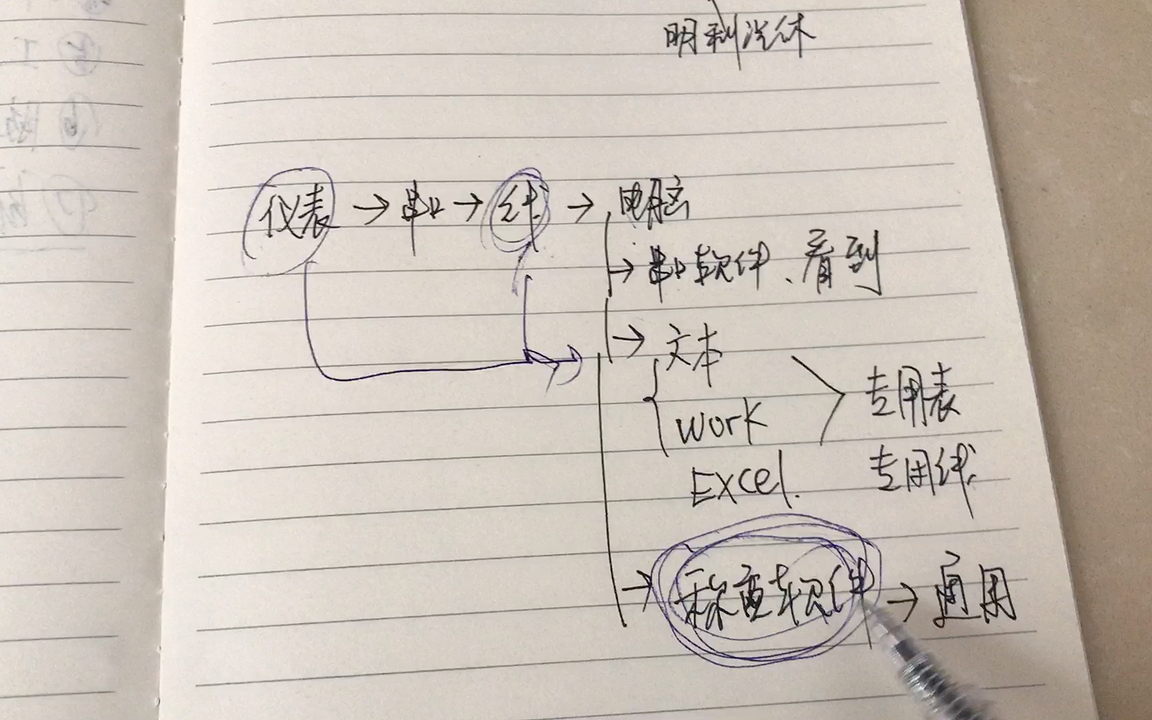 仪表→串口→线→电脑
→串口软件、看到
→文本
work
Excel.
专用表
专用线
→称重软件→通用